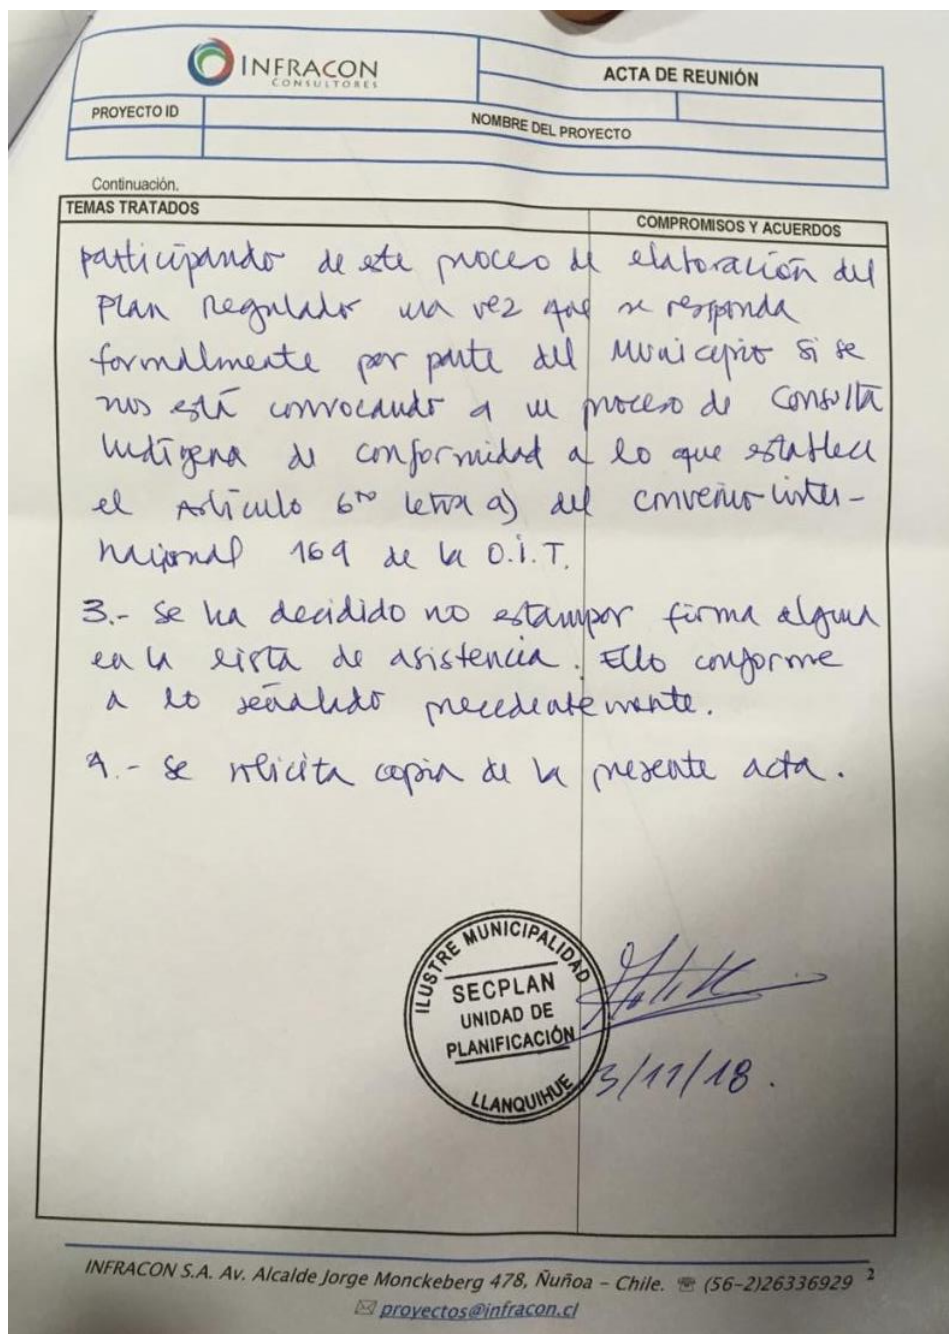 INFRACON
CONSULTORES
ACTA DE REUNIÓN
PROYECTO ID
NOMBRE DEL PROYECTO
Continuación.
TEMAS TRATADOS
COMPROMISOS Y ACUERDOS
participando de este proceso de elaboración del
Plan Regulador una vez que se responda
formalmente por parte del Municipio si se
nos está convocando a un proceso de Consulta
Indígena de conformidad a lo que establece
el Artículo 6to letra a) del convenio inter-
nacional 169 de la O.i.T.
3.- Se ha decidido no estampar firma alguna
en la lista de asistencia. Ello conforme
a lo señalado precedentemente.
4.- Se solicita copia de la presente acta.
ILUSTRE MUNICIPALIDAD
SECPLAN
UNIDAD DE
PLANIFICACIÓN
LLANQUIHUE
3/11/18.
INFRACON S.A. Av. Alcalde Jorge Monckeberg 478, Ñuñoa – Chile. ☏ (56-2)26336929 2
proyectos@infracon.cl